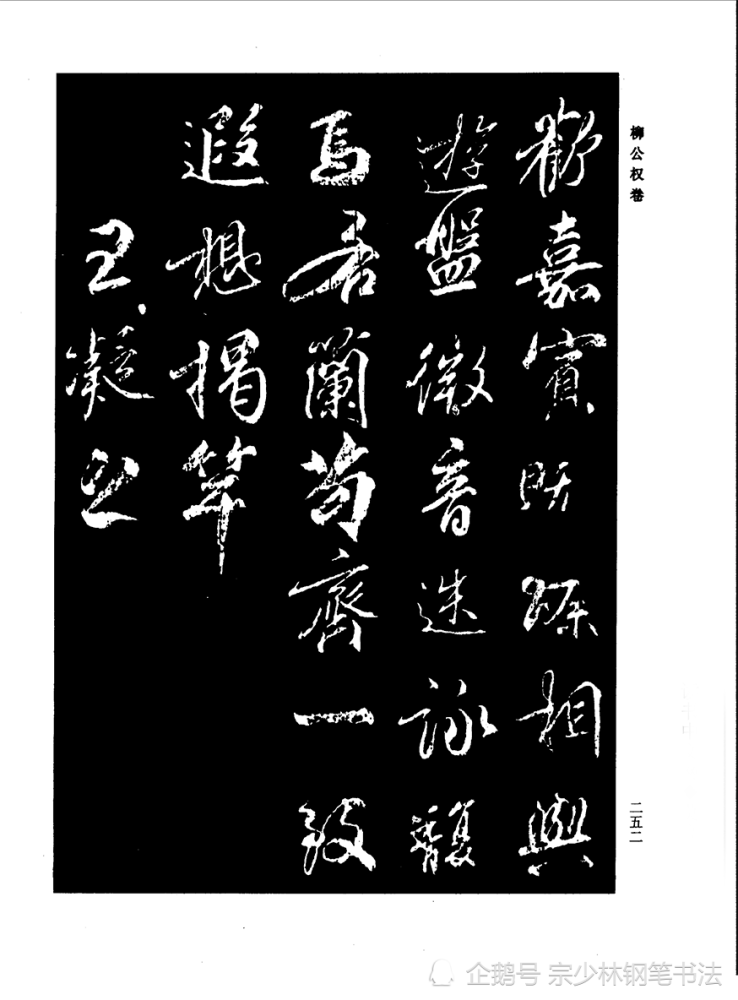 柳公权卷
歡嘉賓既臻相與
遊盤微音迭詠馥
焉若蘭苟齊一致
遐想揭竿
王凝之
二五二
企鹅号 宗少林钢笔书法